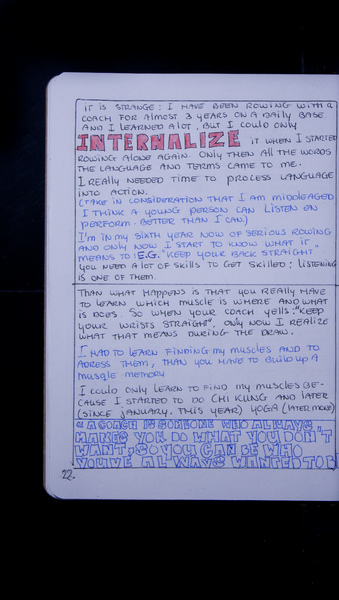 IT IS STRANGE: I HAVE BEEN ROWING WITH A
COACH FOR ALMOST 3 YEARS ON A DAILY BASE
AND I LEARNED A LOT, BUT I COULD ONLY
INTERNALIZE IT WHEN I STARTED
ROWING ALONE AGAIN. ONLY THEN ALL THE WORDS
THE LANGUAGE AND TERMS CAME TO ME.
I REALLY NEEDED TIME TO PROCESS LANGUAGE
INTO ACTION.
(TAKE IN CONSIDERATION THAT I AM MIDDLEAGED
I THINK A YOUNG PERSON CAN LISTEN EN
PERFORM BETTER THAN I CAN)
I'M IN MY SIXTH YEAR NOW OF SERIOUS ROWING
AND ONLY NOW I START TO KNOW WHAT IT
MEANS TO: E.G. "KEEP YOUR BACK STRAIGHT"
YOU NEED A LOT OF SKILLS TO GET SKILLED; LISTENING
IS ONE OF THEM.
THAN WHAT HAPPENS IS THAT YOU REALLY HAVE
TO LEARN WHICH MUSCLE IS WHERE AND WHAT
IS DOES. SO WHEN YOUR COACH YELLS: "KEEP
YOUR WRISTS STRAIGHT", ONLY NOW I REALIZE
WHAT THAT MEANS DURING THE DRAW.
I HAD TO LEARN FINDING MY MUSCLES AND TO
ADRESS THEM, THAN YOU HAVE TO BUILD UP A
MUSQLE MEMORY
I COULD ONLY LEARN TO FIND MY MUSCLES BE-
CAUSE I STARTED TO DO CHI KUNG AND LATER
(SINCE JANUARY THIS YEAR) YOGA (LATER MORE)
"A COACH IS SOMEONE WHO ALWAYS
MAKES YOU DO WHAT YOU DON'T
WANT, SO YOU CAN BE WHO
YOU'VE ALWAYS WANTED TO B
22.